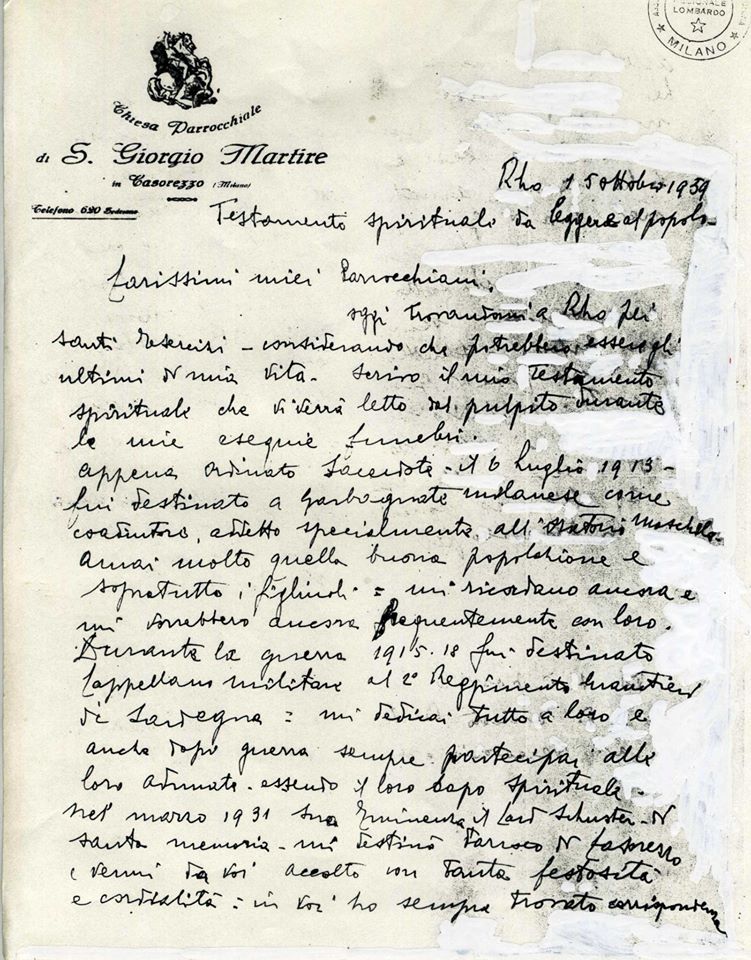 LOMBARDO
MILANO
Chiesa Parrocchiale
di S. Giorgio Martire
in Casorezzo (Milano)
Telefono 690
Rho 15 ottobre 1959
Testamento spirituale da leggere al popolo
Carissimi miei Parrocchiani.
oggi trovandomi a Rho pei
santi Esercizi - considerando che potrebbero essere gli
ultimi di mia vita - scrivo il mio testamento
spirituale che vi verrà letto dal pulpito durante
le mie esequie funebri.
appena ordinato Sacerdote - il 6 Luglio 1913 -
fui destinato a Garbagnate milanese come
coadiutore, addetto specialmente all'oratorio Maschile.
Amai molto quella buona popolazione e
sopratutto i figliuoli = mi ricordano ancora e
mi vorrebbero ancora frequentemente con loro.
Durante la guerra 1915-18 fui destinato
Cappellano militare al 2° Reggimento Granatieri
di Sardegna = mi dedicai tutto a loro e
anche dopo guerra sempre partecipai alle
loro adunate - essendo il loro capo spirituale -
nel marzo 1931 sua Eminenza il Card Schuster - di
santa memoria - mi destinò Parroco di Casorezzo
e venni da voi accolto con tanta festosità
e cordialità = in voi ho sempre trovato corrispondenza